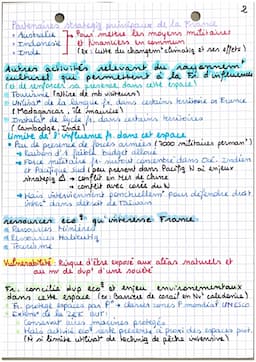 2
Partenaires stratégiq principaux de la France
• Australie
• Indonésie
• Inde
Pour mettre les moyens militaires
et financiers en commun
(Ex: lutte du changem climatiq et ses effets)
Autres activités relevant du rayonnem
culturel qui permettent à la Fr d'influencer
(et de renforcer sa présence dans cette espace)
Tourisme (attire de nb visiteurs)
Utilisat° de la langue fr. dans certains territoires de France
(Madagascar, île maurice)
Instalat° de lycée fr. dans certains territoires
(Cambodge, Inde)
Limite de l'influence fr. dans cet espace
• Peu de présence de forces armées (7000 militaires perman)
→ Raison d'1 faible budget alloué
→ Force militaire fr. surtout concentré dans Océ. Indien
et Pacifique Sud (peu présent dans Pacifiq N où enjeux
stratégiq → conflit en Mer de Chine
→ conflit avec Corée du N
→ Mais interviennent ponctuellem pour défendre droit
inter° dans détroit de Taïwan
ressources eco° qui interesse France
Ressources Minières
Ressources Halieutiq
Tourisme
Vulnérabilité: Risque d'être exposé aux aléas naturels et
au nv de dvp° d'une société
Fr. concilie dvp eco° et enjeu environnementaux
dans cette espace (ex: Barrière de corail en Nv° calédonie)
Fr. protège espaces par classer comme P. mondial UNESCO
Exemple de la ZEE aut:
> Conservat° aires marines protégés
> Mais activité eco° reste présente à proxi des espaces prot.
(N si limite utilisat° de techniq de pêche intensive)